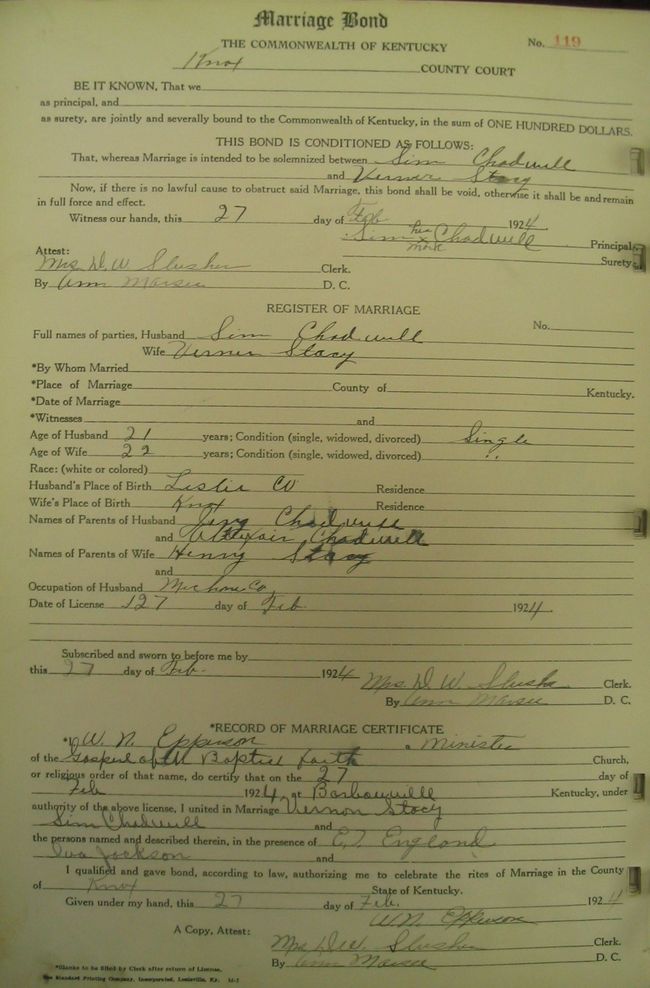 Marriage Bond
THE COMMONWEALTH OF KENTUCKY No. 119
Knox COUNTY COURT
BE IT KNOWN, That we
as principal, and
as surety, are jointly and severally bound to the Commonwealth of Kentucky, in the sum of ONE HUNDRED DOLLARS.
THIS BOND IS CONDITIONED AS FOLLOWS:
That, whereas Marriage is intended to be solemnized between Sim Chadwell
and Verner Stacy
Now, if there is no lawful cause to obstruct said Marriage, this bond shall be void, otherwise it shall be and remain
in full force and effect.
Witness our hands, this 27 day of Feb 1924
Sim his x mark Chadwell Principal
Surety
Attest:
Mrs D. W. Slusher Clerk.
By Ann D. C.
REGISTER OF MARRIAGE
No.
Full names of parties, Husband Sim Chadwell
Wife Verner Stacy
*By Whom Married
*Place of Marriage County of Kentucky.
*Date of Marriage
*Witnesses and
Age of Husband 21 years; Condition (single, widowed, divorced) Single
Age of Wife 22 years; Condition (single, widowed, divorced) "
Race: (white or colored)
Husband's Place of Birth Leslie Co Residence
Wife's Place of Birth Knox Residence
Names of Parents of Husband Chadwell
and Chadwell
Names of Parents of Wife Henry Stacy
and
Occupation of Husband
Date of License 127 day of Feb 1924.
Subscribed and sworn to before me by
this 27 day of Feb. 1924
Mrs D. W. Slusher Clerk.
By Ann D. C.
*RECORD OF MARRIAGE CERTIFICATE
*I, W. N. Epperson a Minister
of the Gospel of Baptist faith Church,
or religious order of that name, do certify that on the 27 day of
Feb 1924, at Barbourville Kentucky, under
authority of the above license, I united in Marriage Vernon Stacy
Sim Chadwell and
the persons named and described therein, in the presence of E. T. England
Iva Jackson and
I qualified and gave bond, according to law, authorizing me to celebrate the rites of Marriage in the County
of Knox State of Kentucky.
Given under my hand, this 27 day of Feb. 1924
W. N. Epperson
A Copy, Attest:
Mrs D. W. Slusher Clerk.
By Ann D. C.
*Blanks to be filled by Clerk after return of License.
The Standard Printing Company, Incorporated, Louisville, Ky.